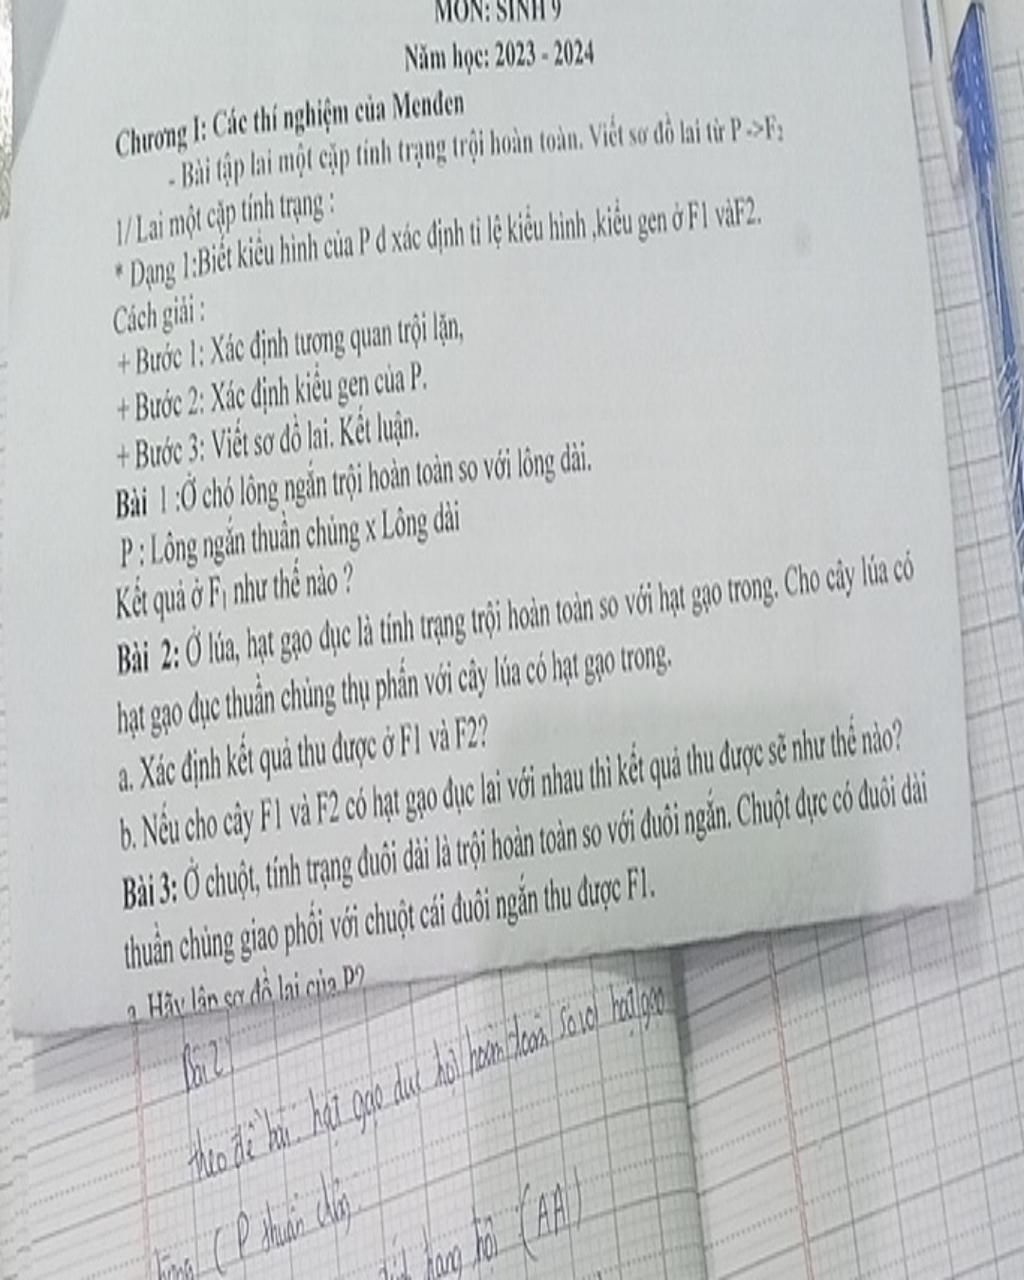 MÔN: SINH 9
Năm học: 2023 - 2024
Chương I: Các thí nghiệm của Menđen
- Bài tập lai một cặp tính trạng trội hoàn toàn. Viết sơ đồ lai từ P ->F2
1/ Lai một cặp tính trạng :
* Dạng 1:Biết kiểu hình của P đ xác định tỉ lệ kiểu hình ,kiểu gen ở F1 vàF2.
Cách giải :
+ Bước 1: Xác định tương quan trội lặn,
+ Bước 2: Xác định kiểu gen của P.
+ Bước 3: Viết sơ đồ lai. Kết luận.
Bài 1 :Ở chó lông ngắn trội hoàn toàn so với lông dài.
P : Lông ngắn thuần chủng x Lông dài
Kết quả ở F1 như thế nào ?
Bài 2: Ở lúa, hạt gạo đục là tính trạng trội hoàn toàn so với hạt gạo trong. Cho cây lúa có
hạt gạo đục thuần chủng thụ phấn với cây lúa có hạt gạo trong.
a. Xác định kết quả thu được ở F1 và F2?
b. Nếu cho cây F1 và F2 có hạt gạo đục lai với nhau thì kết quả thu được sẽ như thế nào?
Bài 3: Ở chuột, tính trạng đuôi dài là trội hoàn toàn so với đuôi ngắn. Chuột đực có đuôi dài
thuần chủng giao phối với chuột cái đuôi ngắn thu được F1.
a. Hãy lập sơ đồ lai của P?
Bài 2:
theo đề bài: hạt gạo đục trội hoàn toàn so với hạt gạo
( P thuần chủng
trạng trội (AA)